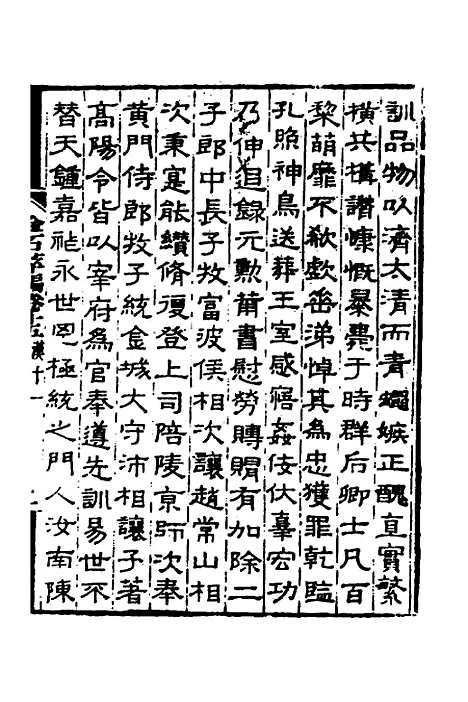 訓品物以濟太清而青蠅嫉正醜直實繁
橫共構譖慷慨暴薨于時群后卿士凡百
黎萌靡不欷歔垂涕悼其為忠獲罪乾監
孔昭神鳥送葬王室感寤姦佞伏辜宏功
乃伸追錄元勳莆書慰勞賻賵有加除二
子郎中長子牧富波侯相次讓趙常山相
次秉寔能纘脩復登上司陪陵京師次奉
黃門侍郎牧子統金城大守沛相讓子著
高陽令皆以宰府為官奉遵先訓易世不
替天鍾嘉祉永世罔極統之門人汝南陳
金石萃編卷十五漢十一